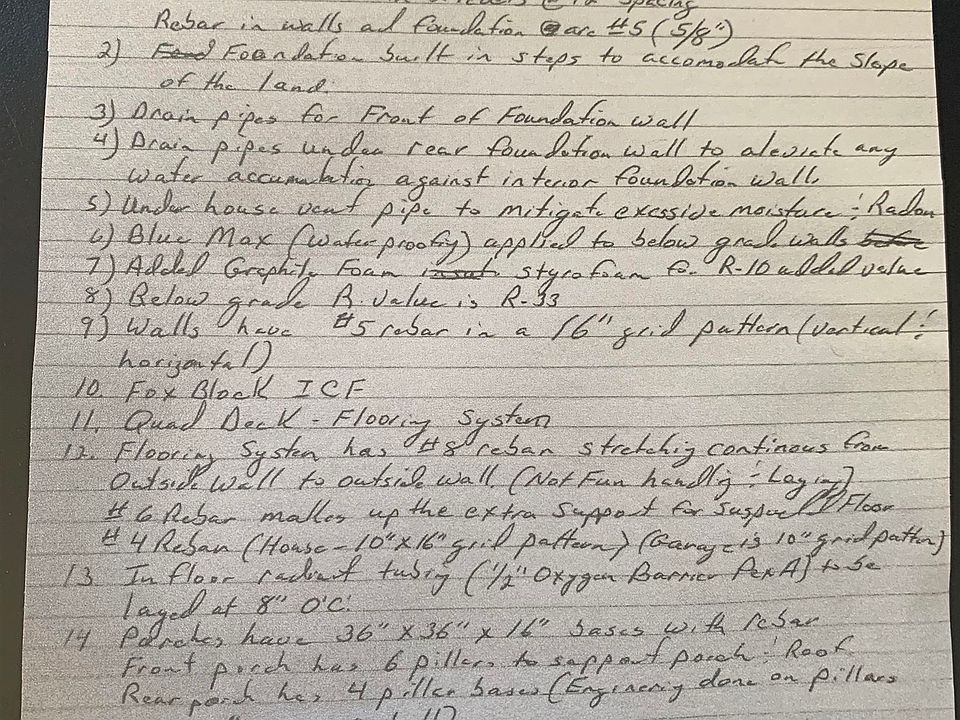 @ 12 spacing
Rebar in walls ad foundation are #5 (5/8")
2) Foundation built in steps to accomodate the slope
of the land.
3) Drain pipes for Front of Foundation wall
4) Drain pipes under rear foundation wall to aleviate any
water accumulation against interior foundation wall.
5) Under house vent pipe to mitigate excssive moisture & Radon
6) Blue Max (waterproofig) applied to below grade walls
7) Added Graphite Foam styrofoam for R-10 added value
8) Below grade R. value is R-33
9) Walls have #5 rebar in a 16" grid pattern (vertical &
horizontal)
10. Fox Block ICF
11. Quad Deck - Flooring System
12. Flooring System has #8 rebar stretchig continous from
Outside wall to outside wall. (Not Fun handlig & Laying)
#6 Rebar makes up the extra support for suspended Floor
#4 Rebar (House - 10" X 16" grid pattern) (Garage is 10" grid pattern)
13. In floor radiant tubig (1/2" Oxygen Barrier Pex A) to be
layed at 8" O'C.
14 Porches have 36" X 36" x 16" bases with rebar
Front porch has 6 pillers to support porch & Roof
Rear porch has 4 piller bases (Enginerig done on pillars